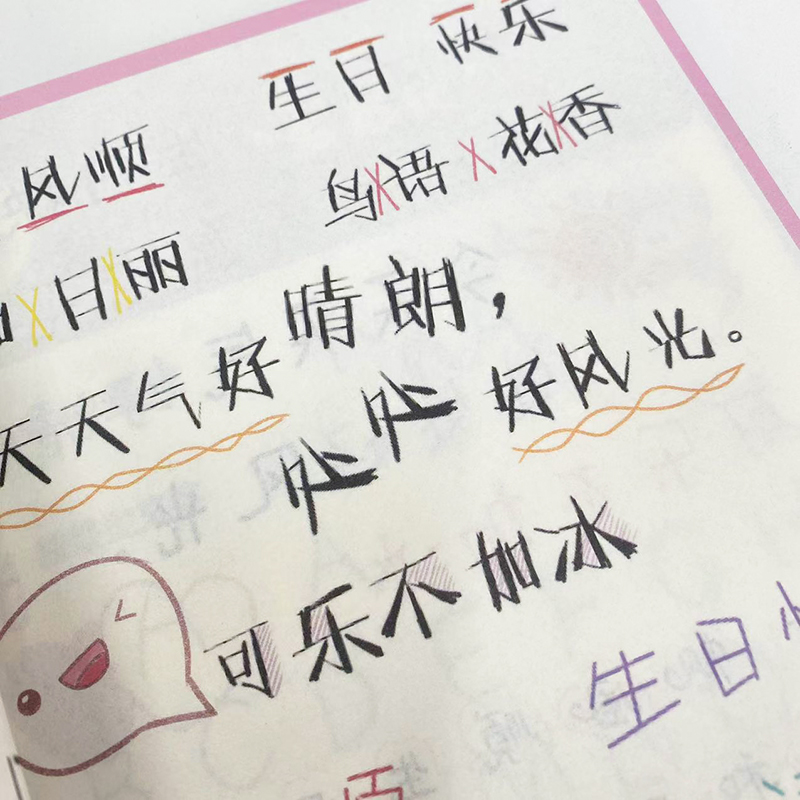 生日 快乐
风顺
鸟语 花香
日丽
天天气好晴朗，
处处好风光。
可乐不加冰
生日